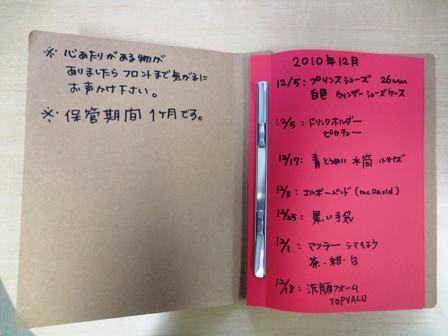 ※ 心あたりがある物が
ありましたらフロントまで気がるに
お声かけ下さい。
※ 保管期間 1ヶ月です。
2010年12月
12/5: プリンスシューズ 26cm
白色 ウィンザーシューズケース
12/5: ドリンクホルダー
ピカチュー
12/17: 青とうめい 水筒 小サイズ
12/3: エルボーバンド (McDavid)
12/25: 黒い手袋
12/1: マフラー シマもよう
茶・紺・白
12/18: 洗顔フォーム
TOPVALU